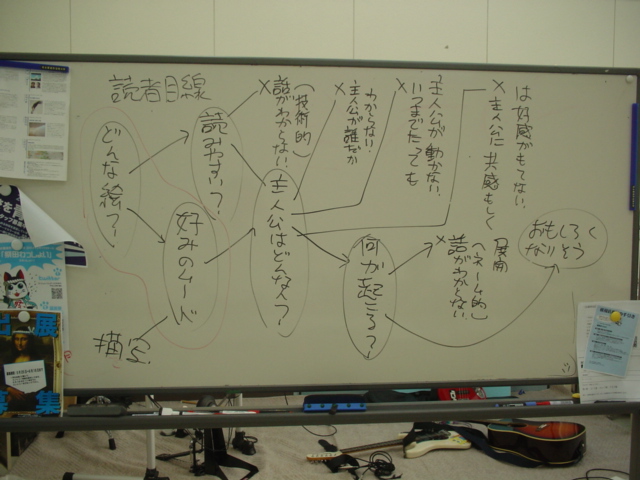 読者目線
どんな絵?
読みやすい?
好みのムード
描写
×話がわからない。
(技術的)
主人公はどんな人?
×主人公が誰だか
わからない。
×いつまでたっても
主人公が動かない。
×主人公に共感もしく
は好感がもてない。
何が起こる?
×話がわからない。
(ネーム的)
展開
おもしろく
なりそう
展
募集